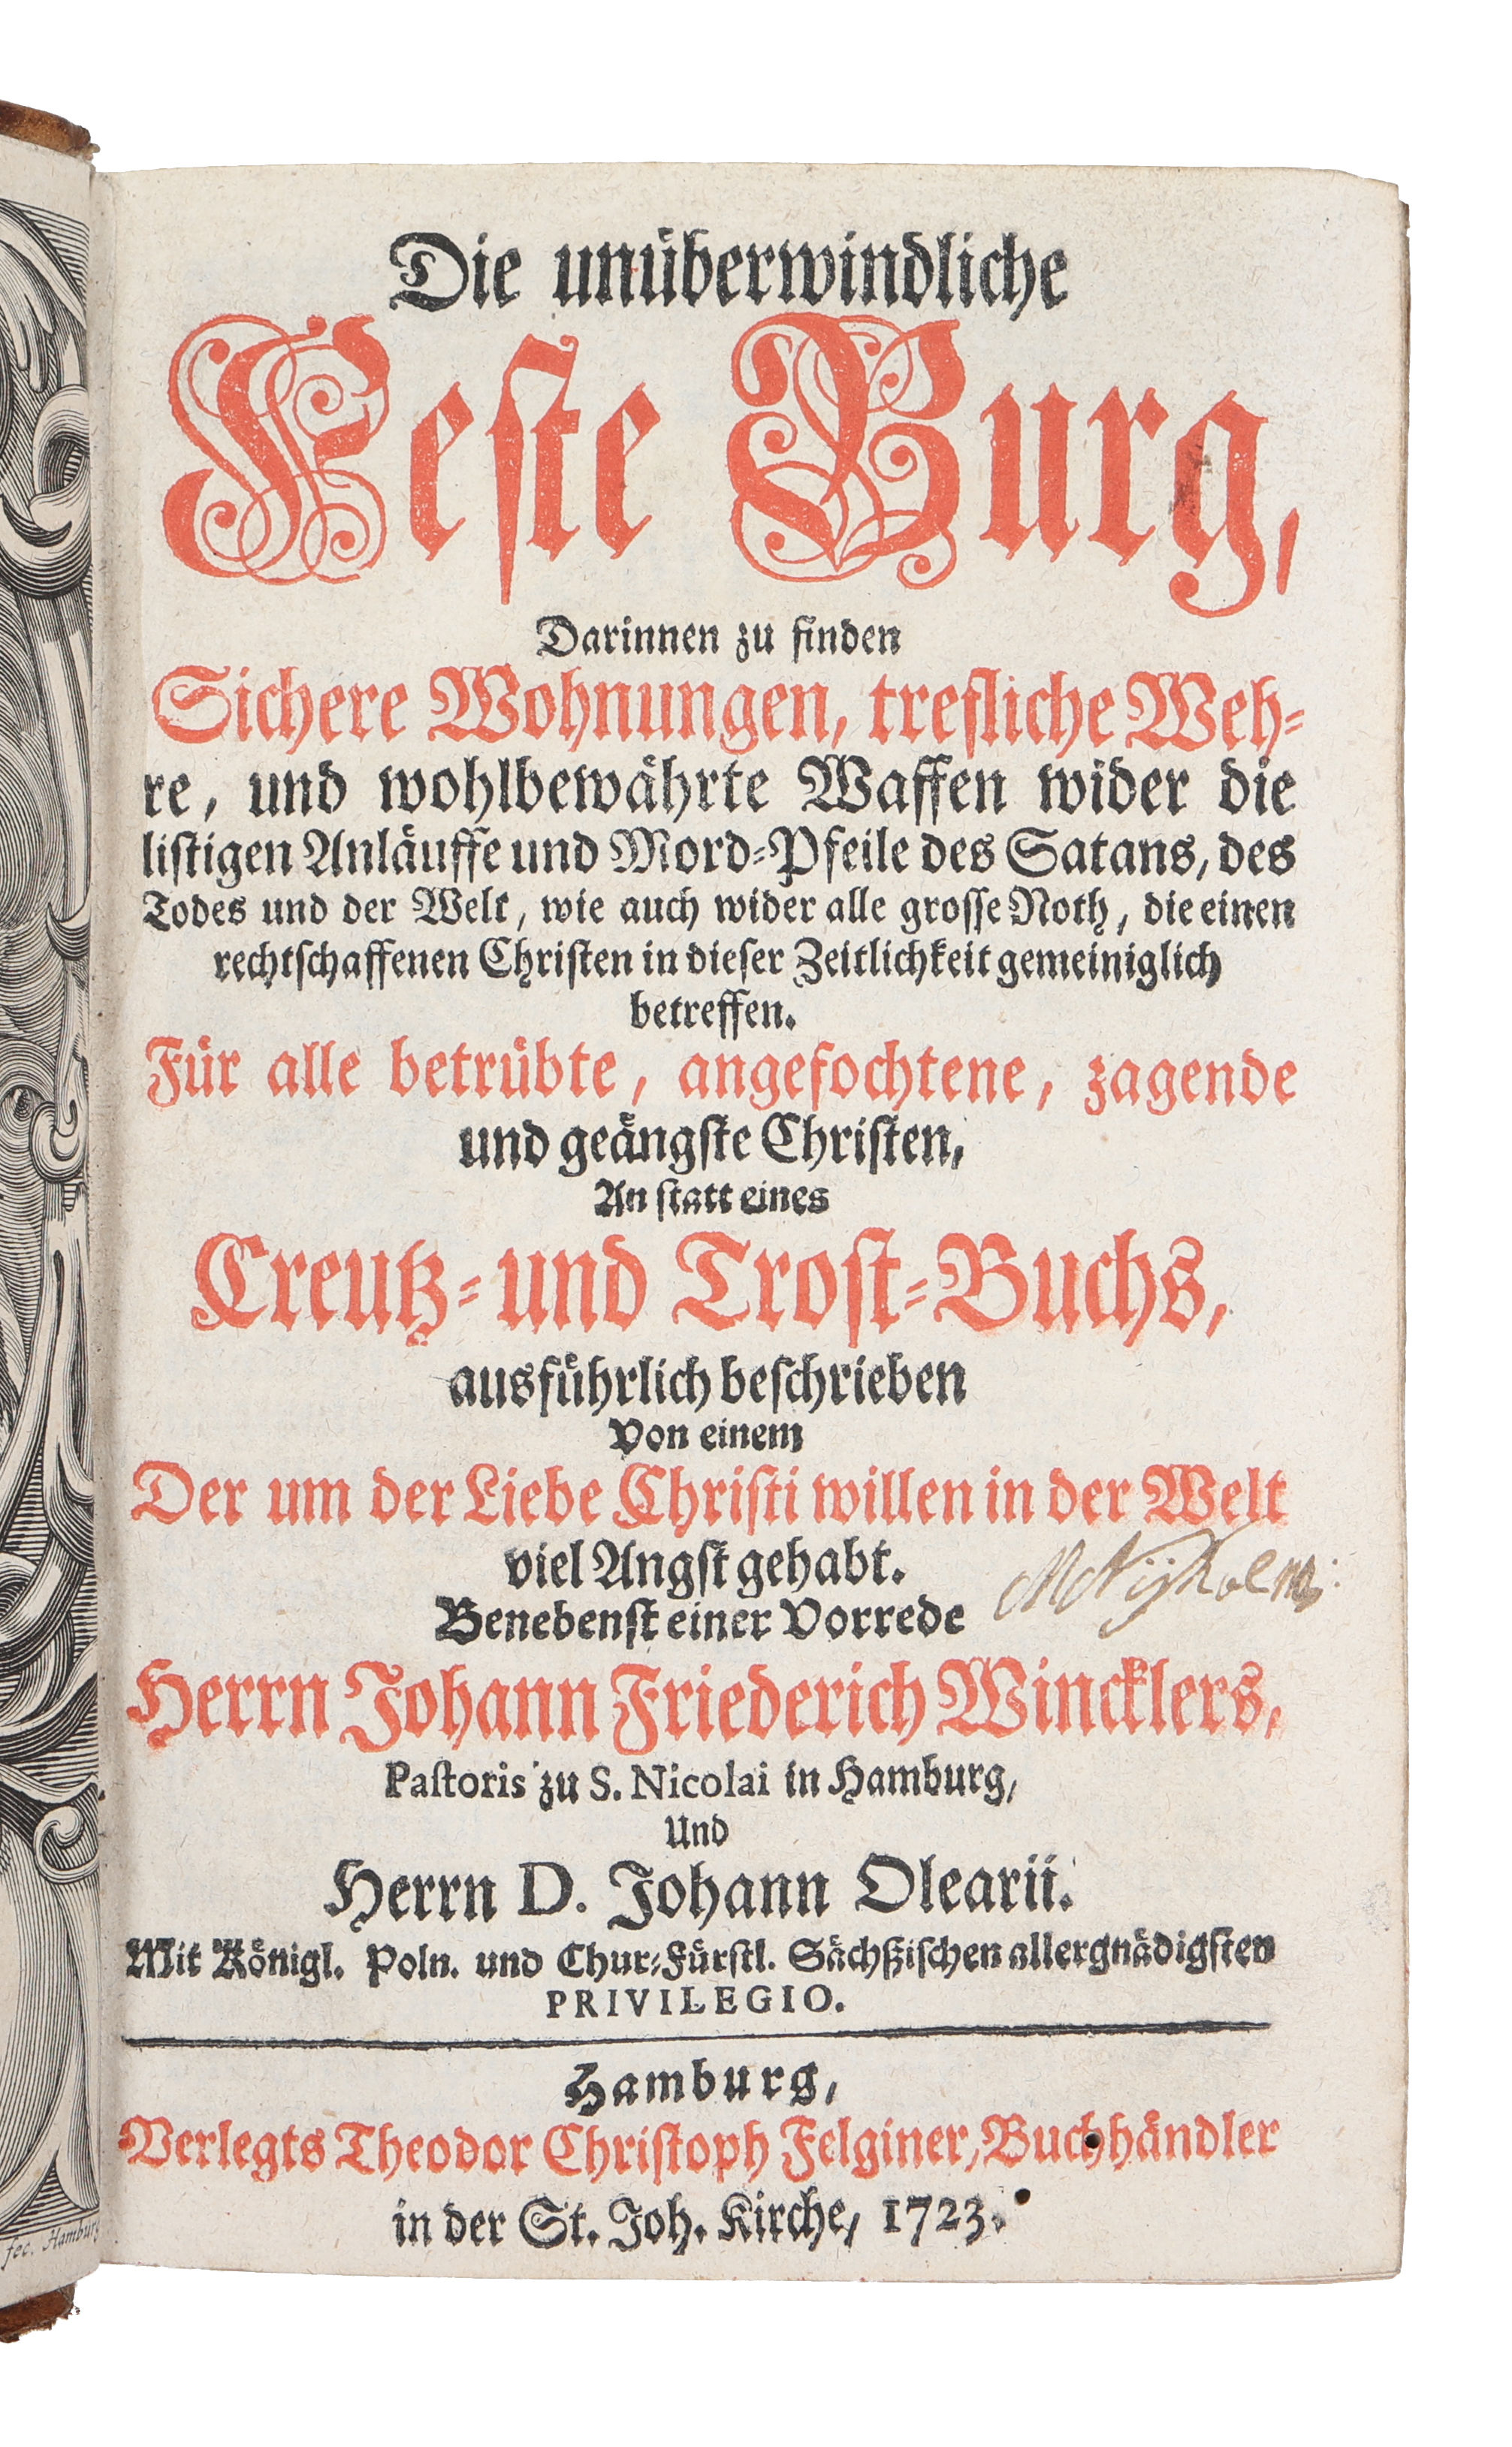 Die unüberwindliche
Feste Burg,
Darinnen zu finden
Sichere Wohnungen, trefliche Weh-
re, und wohlbewährte Waffen wider die
listigen Anläuffe und Mord-Pfeile des Satans, des
Todes und der Welt, wie auch wider alle grosse Noth, die einen
rechtschaffenen Christen in dieser Zeitlichkeit gemeiniglich
betreffen.
Für alle betrübte, angefochtene, zagende
und geängste Christen,
An statt eines
Creutz- und Trost-Buchs,
ausführlich beschrieben
Von einem
Der um der Liebe Christi willen in der Welt
viel Angst gehabt.
Benebenst einer Vorrede
Herrn Johann Friederich Wincklers,
Pastoris zu S. Nicolai in Hamburg,
Und
Herrn D. Johann Olearii.
Mit Königl. Poln. und Chur-Fürstl. Sächßischen allergnädigsten
PRIVILEGIO.
Hamburg,
Verlegts Theodor Christoph Felginer, Buchhändler
in der St. Joh. Kirche, 1723.
fec. Hamburg